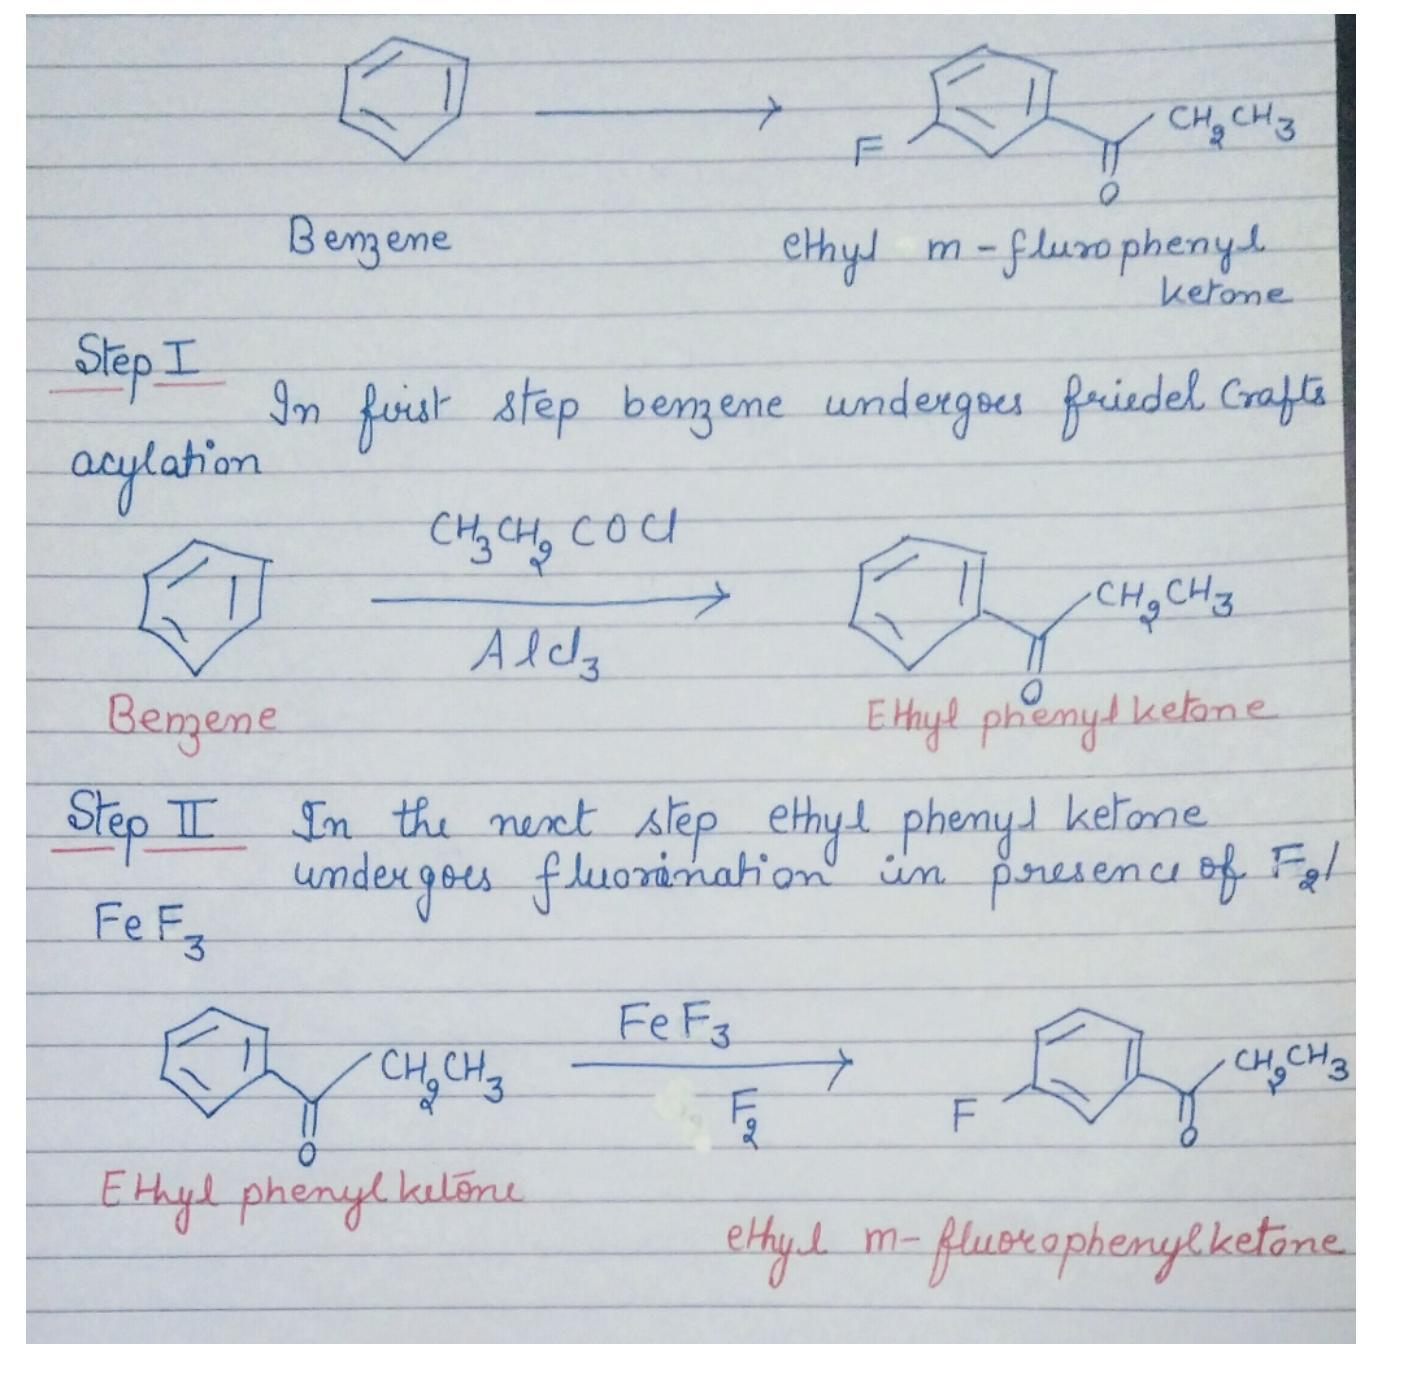 F
CH2CH3
O
Benzene
ethyl m-flurophenyl
ketone
Step I
In first step benzene undergoes friedel Crafts
acylation
CH3CH2COCl
AlCl3
CH2CH3
O
Benzene
Ethyl phenyl ketone
Step II In the next step ethyl phenyl ketone
undergoes fluorination in presence of F2/
FeF3
CH2CH3
O
FeF3
F2
F
CH2CH3
O
Ethyl phenyl ketone
ethyl m-fluorophenylketone